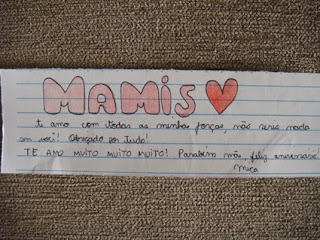 MAMIS
ti amo com todas as minhas forças, não seria nada
sem você! Obrigado por Tudo!
TE AMO MUITO MUITO MUITO! Parabéns mãe, feliz aniversário!